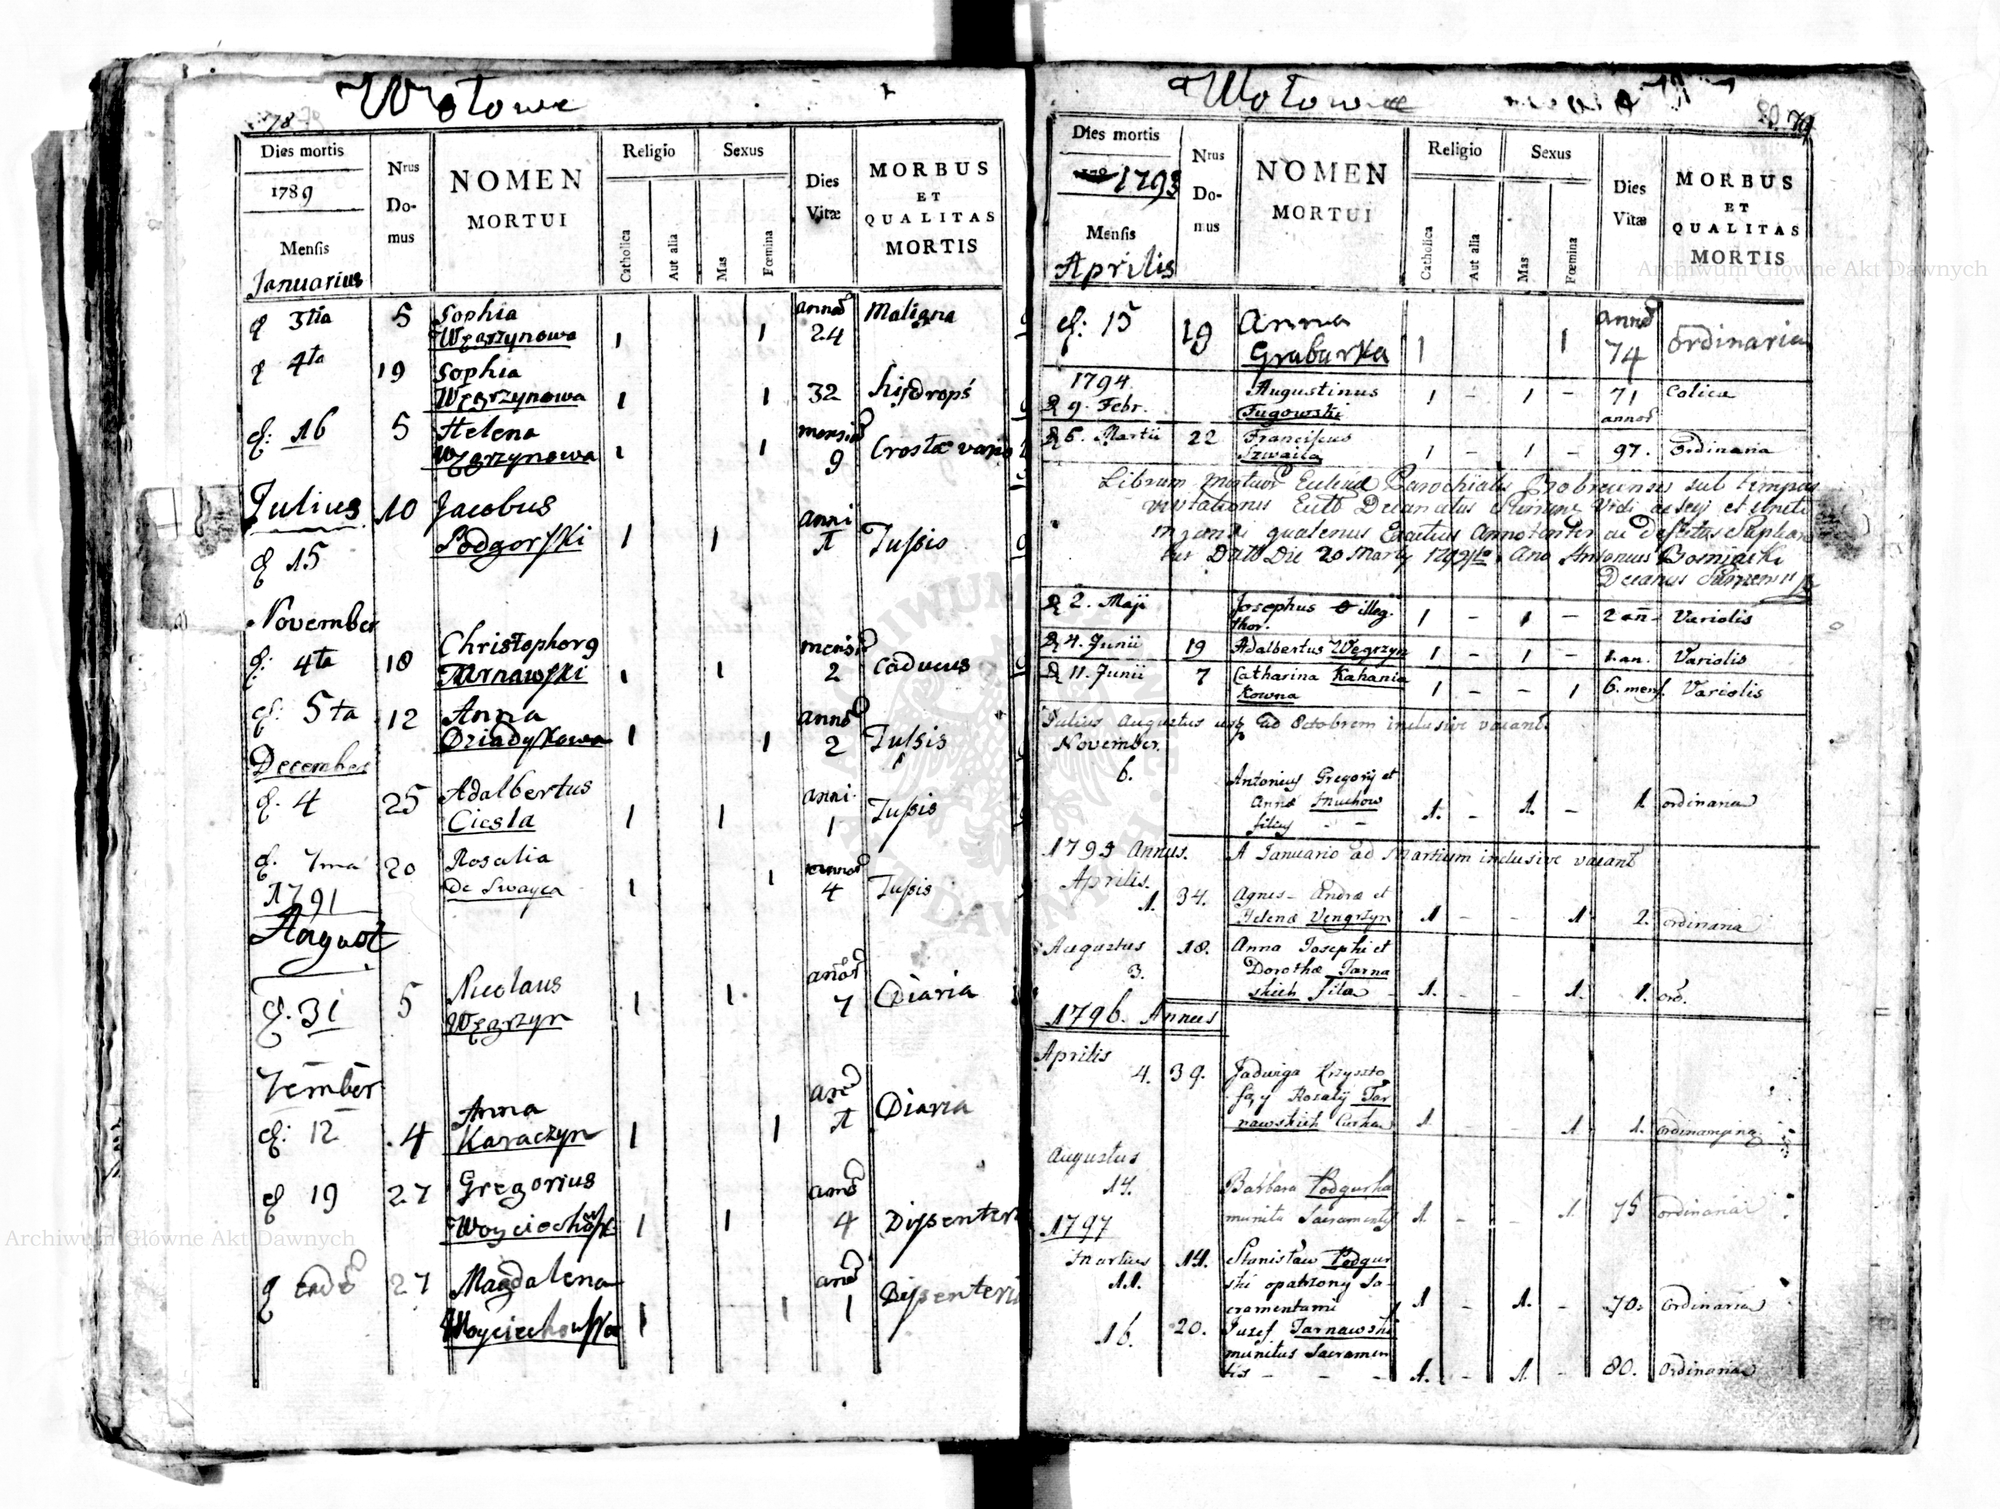 Wołowe
78
Dies mortis
1789
Mensis
Januarius
Nrus Domus
NOMEN
MORTUI
Religio
Catholica
Aut alia
Sexus
Mas
Fœmina
Dies
Vitæ
MORBUS
ET
QUALITAS
MORTIS
3tia 5 Sophia annor
Węgrzynowa 1 1 24 Maligna
4ta 19 Sophia
Węgrzynowa 1 1 32
16 5 Helena
Węgrzynowa 1 1 9 Crosta
Julius 10 Jacobus anni
15 Podgorski 1 1 1 Tussis
November
4ta 18 Christophorg
Tarnawski 1 1 2 caducus
5ta 12 Anna annor
Dziadykowa 1 1 2 Tussis
December
4 25 Adalbertus anni
Ciesla 1 1 1 Tussis
7ma 20 Rosalia
De Swayca 1 1 4 Tussis
1791
August
31 5 Nicolaus
Węgrzyn 1 1 7 Diaria
7ember
12 4 Anna
Karaczyn 1 1 1 Diaria
19 27 Gregorius
1 1 4
27 Magdalena
1 1 1
Wołowe
79
Dies mortis
1793
Mensis
Aprilis
Nrus
Domus
NOMEN
MORTUI
Religio
Catholica
Aut alia
Sexus
Mas
Fœmina
Dies
Vitæ
MORBUS
ET
QUALITAS
MORTIS
15 19 Anna annor
Graburka 1 1 74 ordinaria
1794.
9. Febr. Augustinus 1 - 1 - 71 Colica
Fugowski annor
6. Martii 22 Franciscus
1 - 1 - 97. Ordinaria
Librum Mortuor Parochialis sub tempus
Decanatus
quatenus
Die 20 Antonius
Decanus
2. Maji Josephus illeg. 1 - 1 - 2 an. Variolis
thor.
4. Junii 19 Adalbertus Węgrzyn 1 - 1 - 1. an. Variolis
11. Junii 7 Catharina Kahania
kowna 1 - - 1 6. mens. Variolis
Julius Augustus usq ad Octobrem inclusive vacant.
November.
6. Antonius Gregorij et
Annæ
filius - - 1. - 1. - 1. ordinaria
1795 Annus. A Januario ad Martium inclusive vacant
Aprilis.
1. 34. Agnes Andreæ et
Helenæ Vengrzyn 1 - - 1 2. ordinaria
Augustus 18. Anna Josephi et
3. Dorothæ Tarna
skich filia 1. - - 1. 1. ord.
1796. Annus
Aprilis
4. 39. Jadwiga Krzyszto
fa, y Rozalij Tar
nawskich Curka 1 - - 1 1.
Augustus
14. Barbara Podgurka
munita Sacramentis 1. - - 1. 75 ordinaria
1797
Martius 14. Stanisław Podgur
11. ski opatrzony Sa-
cramentami 1 - 1. - 70. Ordinaria
16. 20. Juzef Tarnawski
munitus Sacramen
tis - - - 1. - 1. - 80. Ordinaria
Archiwum Główne Akt Dawnych
Archiwum Główne Akt Dawnych
ARCHIWUM GŁÓWNE AKT DAWNYCH